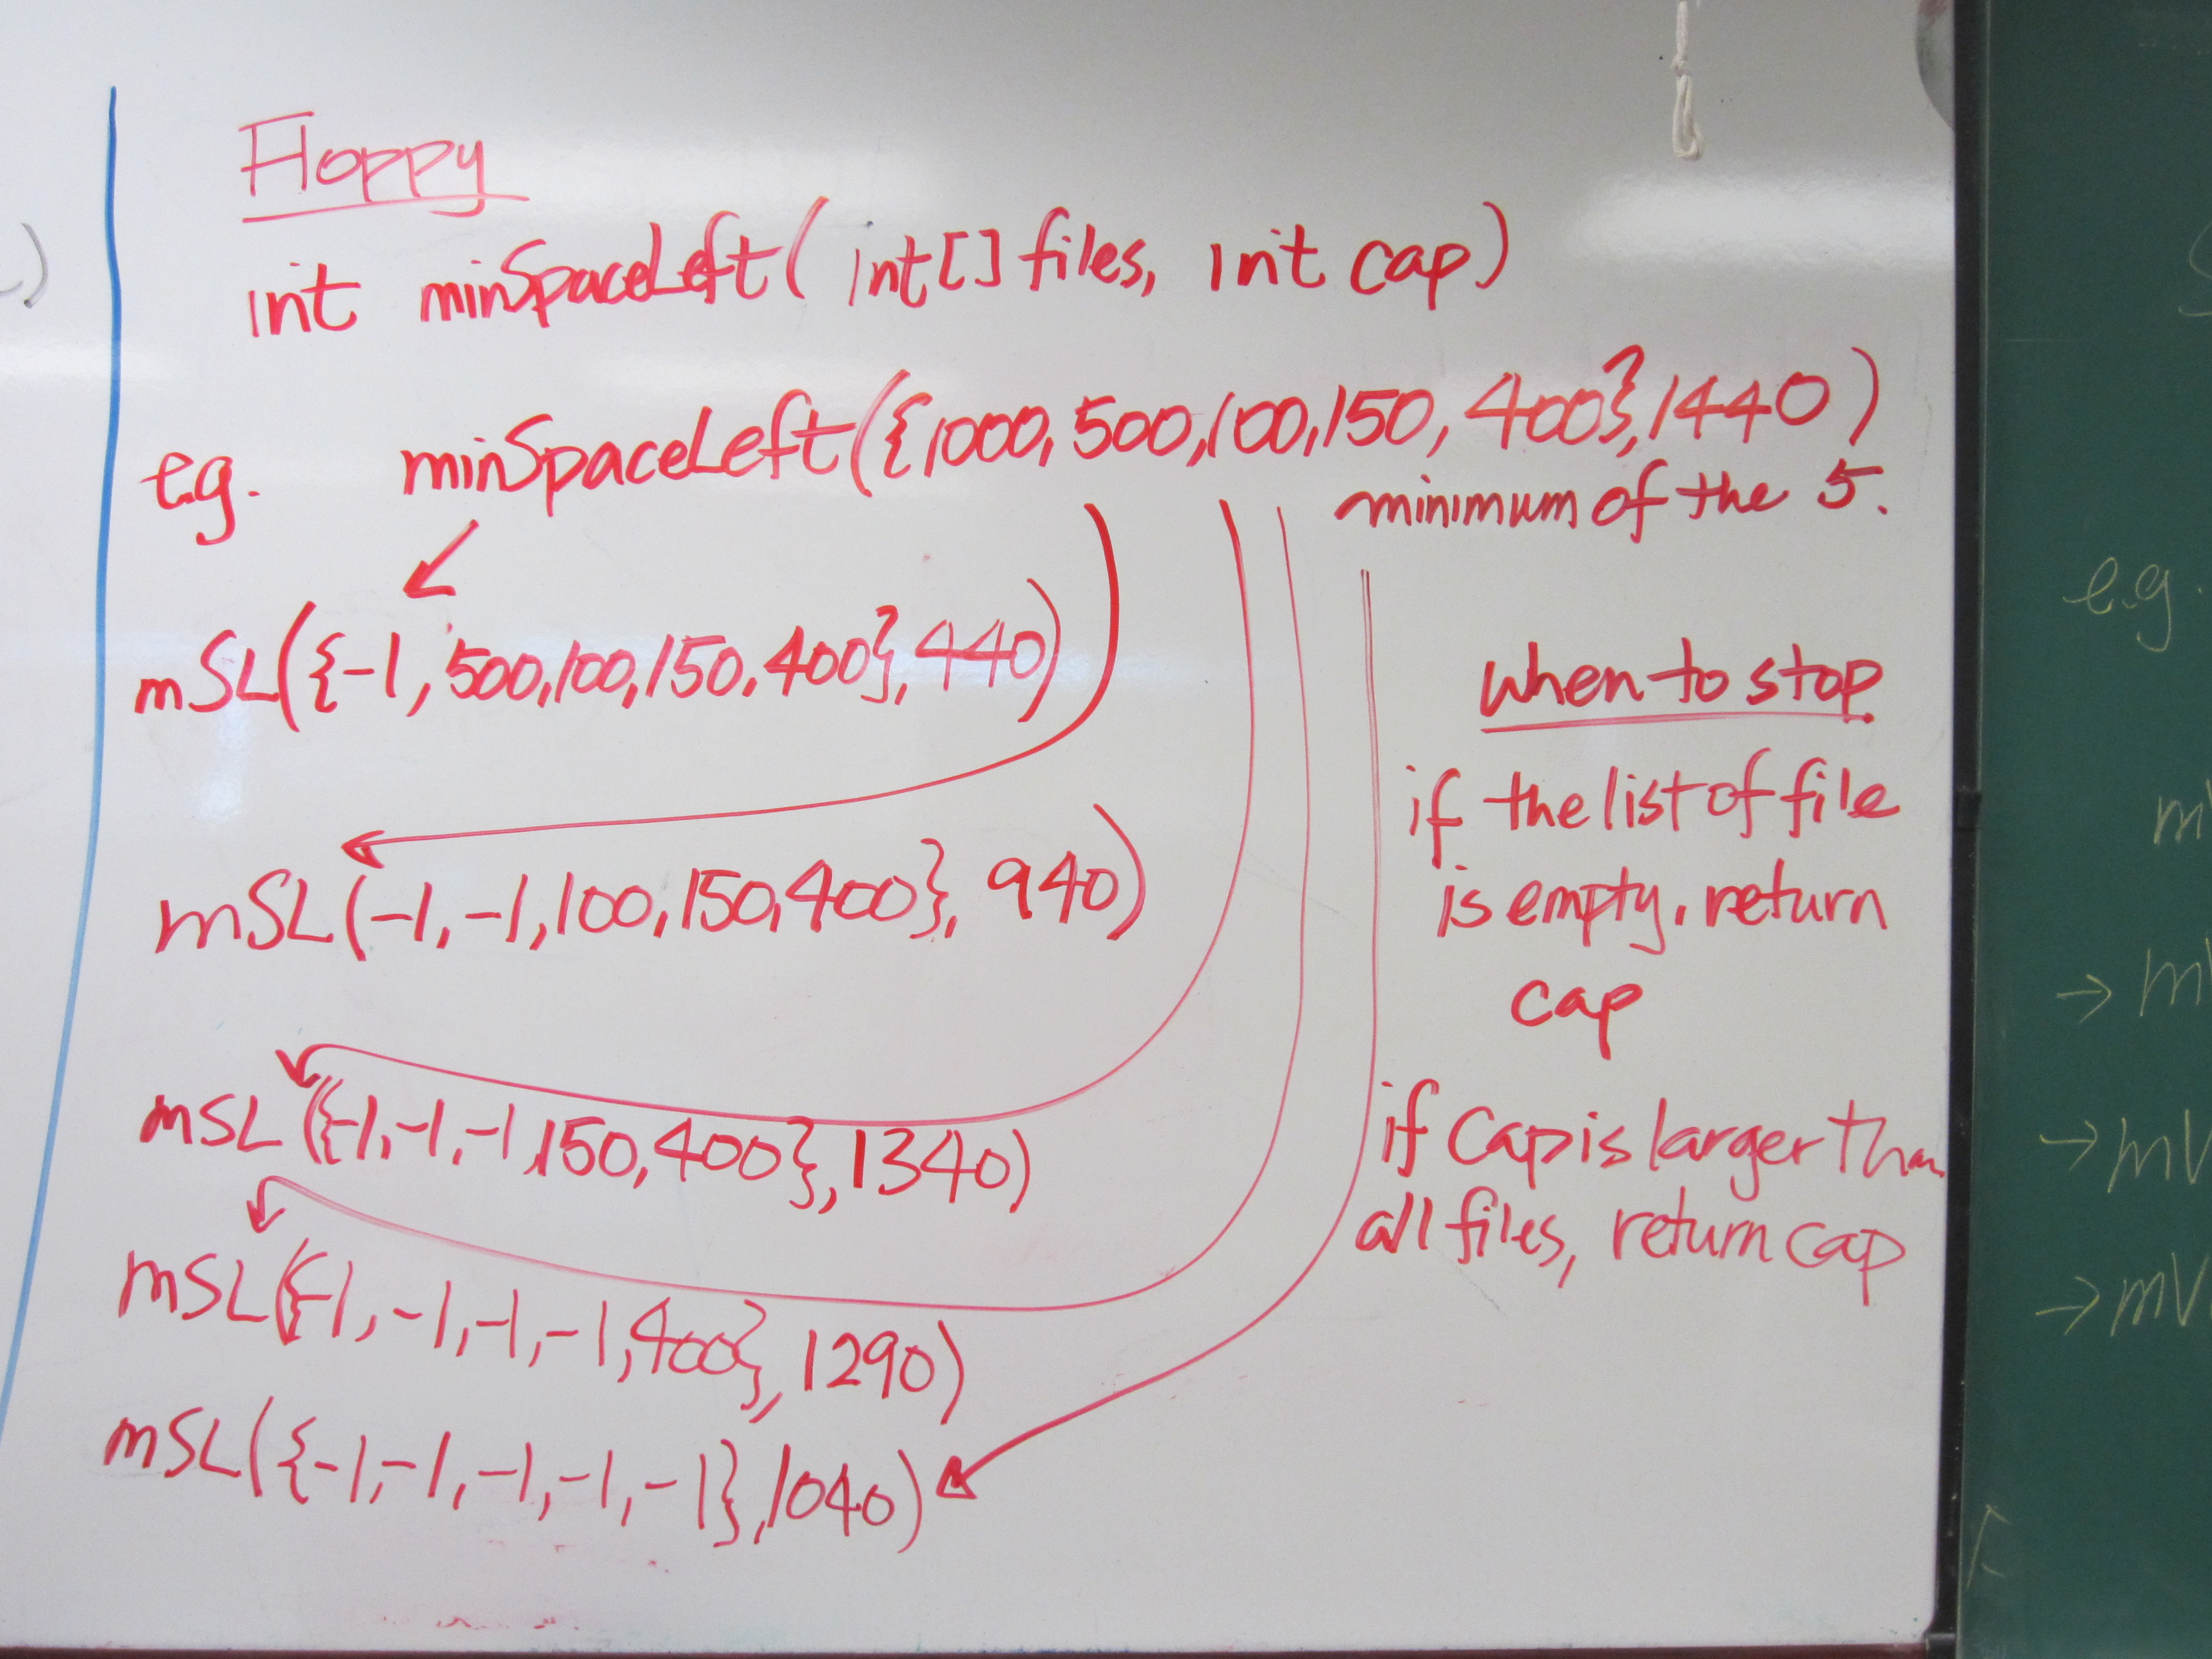 Floppy
int minSpaceLeft( int[] files, int cap)
e.g. minSpaceLeft({1000,500,100,150,400},1440)
minimum of the 5.
mSL({-1,500,100,150,400},440)
mSL(-1,-1,100,150,400}, 940)
mSL({-1,-1,-1,150,400},1340)
mSL({-1,-1,-1,-1,400},1290)
mSL({-1,-1,-1,-1,-1},1040)
when to stop
if the list of file
is empty, return
cap
if Cap is larger than
all files, return cap
e.g.
→ m
→ mV
→ mV